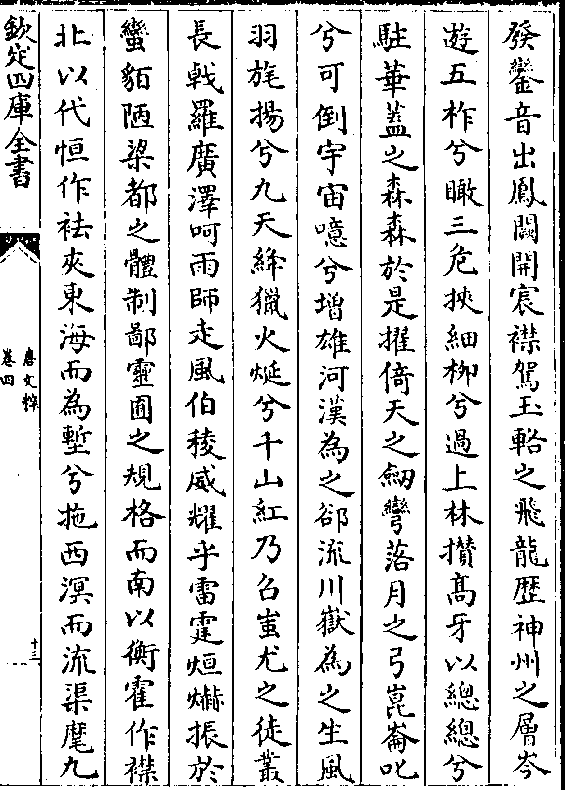 發鑾音出鳳闕開宸襟駕玉輅之飛龍歴神州之層岑
遊五柞兮瞰三危挾細柳兮過上林攢髙牙以總總兮
駐華蓋之森森於是擢倚天之劒彎落月之弓崑崙叱
兮可倒宇宙噫兮増雄河漢為之郤流川嶽為之生風
羽旄揚兮九天絳獵火㷼兮千山紅乃召蚩尤之徒叢
長㦸羅廣澤呵雨師走風伯稜威耀乎雷霆烜爀振於
蠻貊陋梁都之體制鄙靈囿之規格而南以衡霍作襟
北以代恒作祛夾東海而為塹兮拖西溟而流渠麾九
欽定四庫全書
唐文粹
卷四
十三